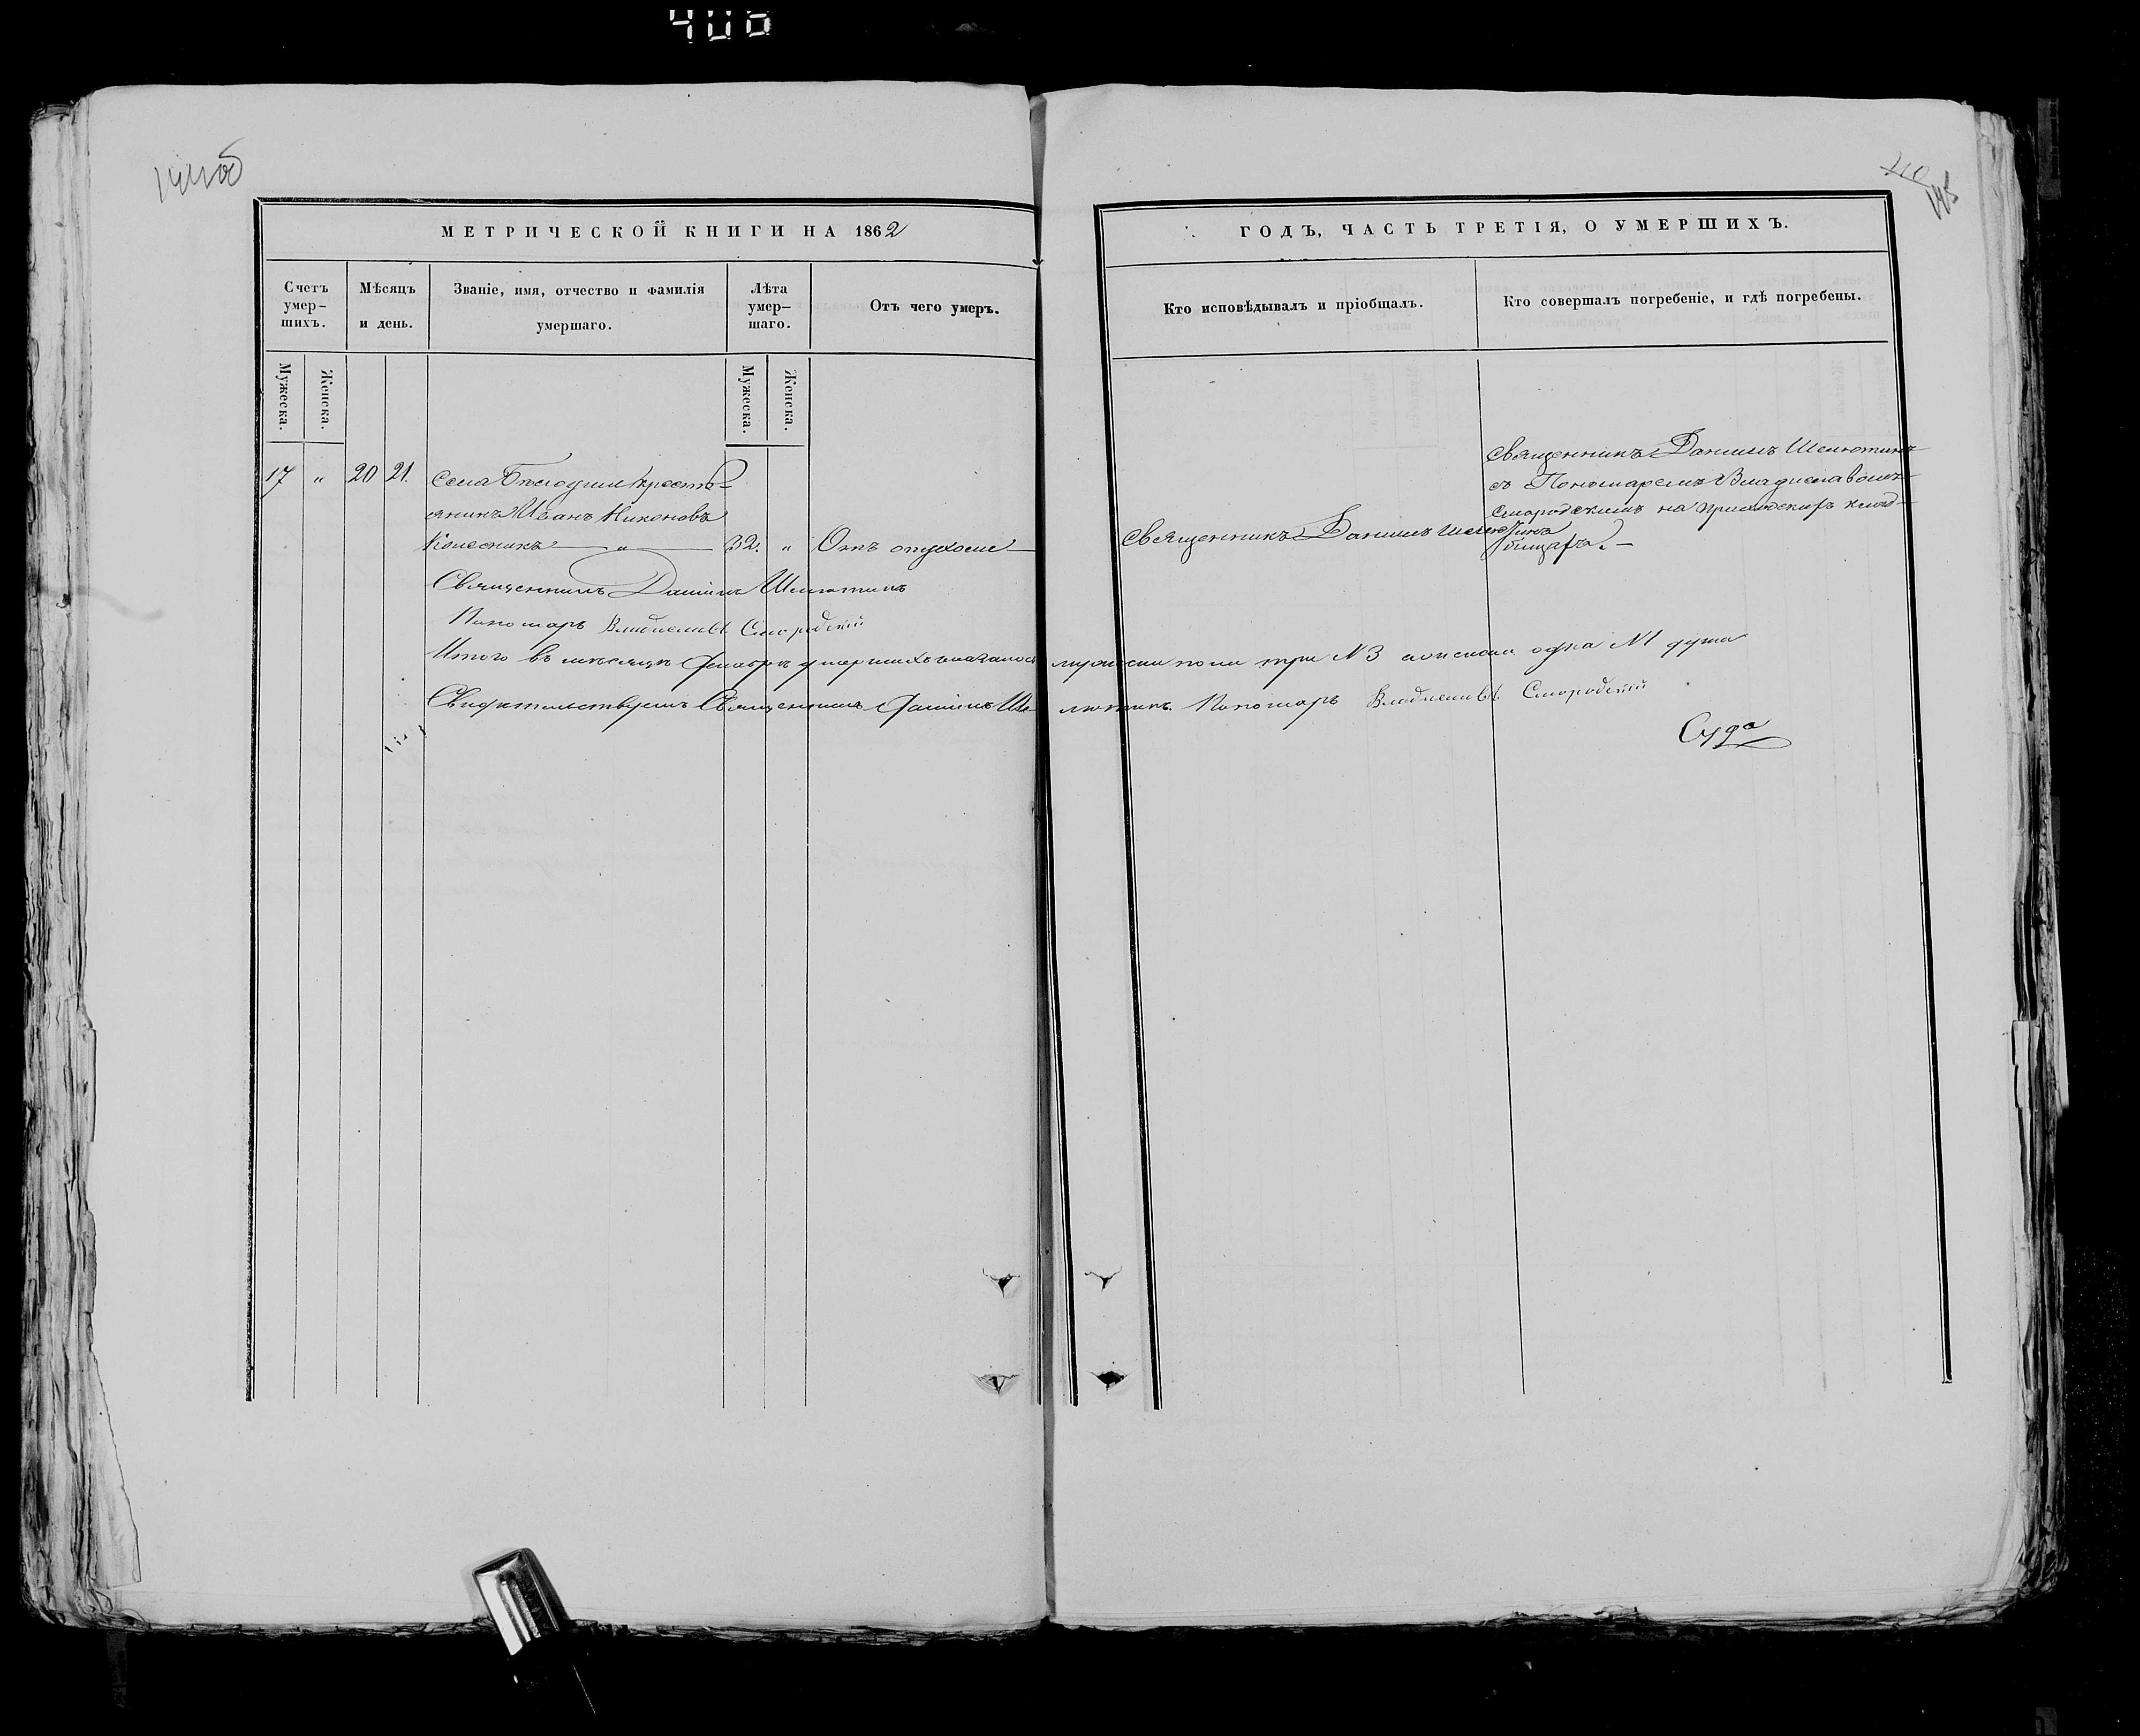 400
144об
210
145
МЕТРИЧЕСКОЙ КНИГИ НА 1862
ГОДЪ, ЧАСТЬ ТРЕТІЯ, О УМЕРШИХЪ.
Счетъ умер-шихъ.
Мѣсяцъ и день.
Званіе, имя, отчество и фамилія умершаго.
Лѣта умер-шаго.
Отъ чего умеръ.
Кто исповѣдывалъ и пріобщалъ.
Кто совершалъ погребеніе, и гдѣ погребены.
Мужеска.
Женска.
Мужеска.
Женска.
17 " 20 21.
Села кресть-
янинъ Иванъ Никоновъ
Колесникъ — " — 32. " Отъ опухоли
Священникъ Даніилъ Шелютинъ
Священникъ Даніилъ Шелютинъ
съ Пономаремъ Владиславомъ
Смородскимъ на приходскомъ клад-
бищѣ. —
Священникъ Даніилъ Шелютинъ
Пономарь Смородскій
Итого въ мѣсяцѣ умершихъ мужеска пола три № 3 женска одна № 1 душа
Свидѣтельствуемъ Священникъ Даніилъ Шелютинъ. Пономарь Смородскій